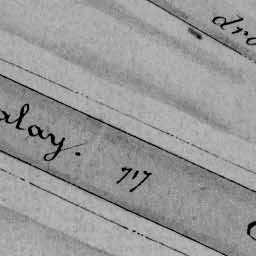 dro
alay. 717